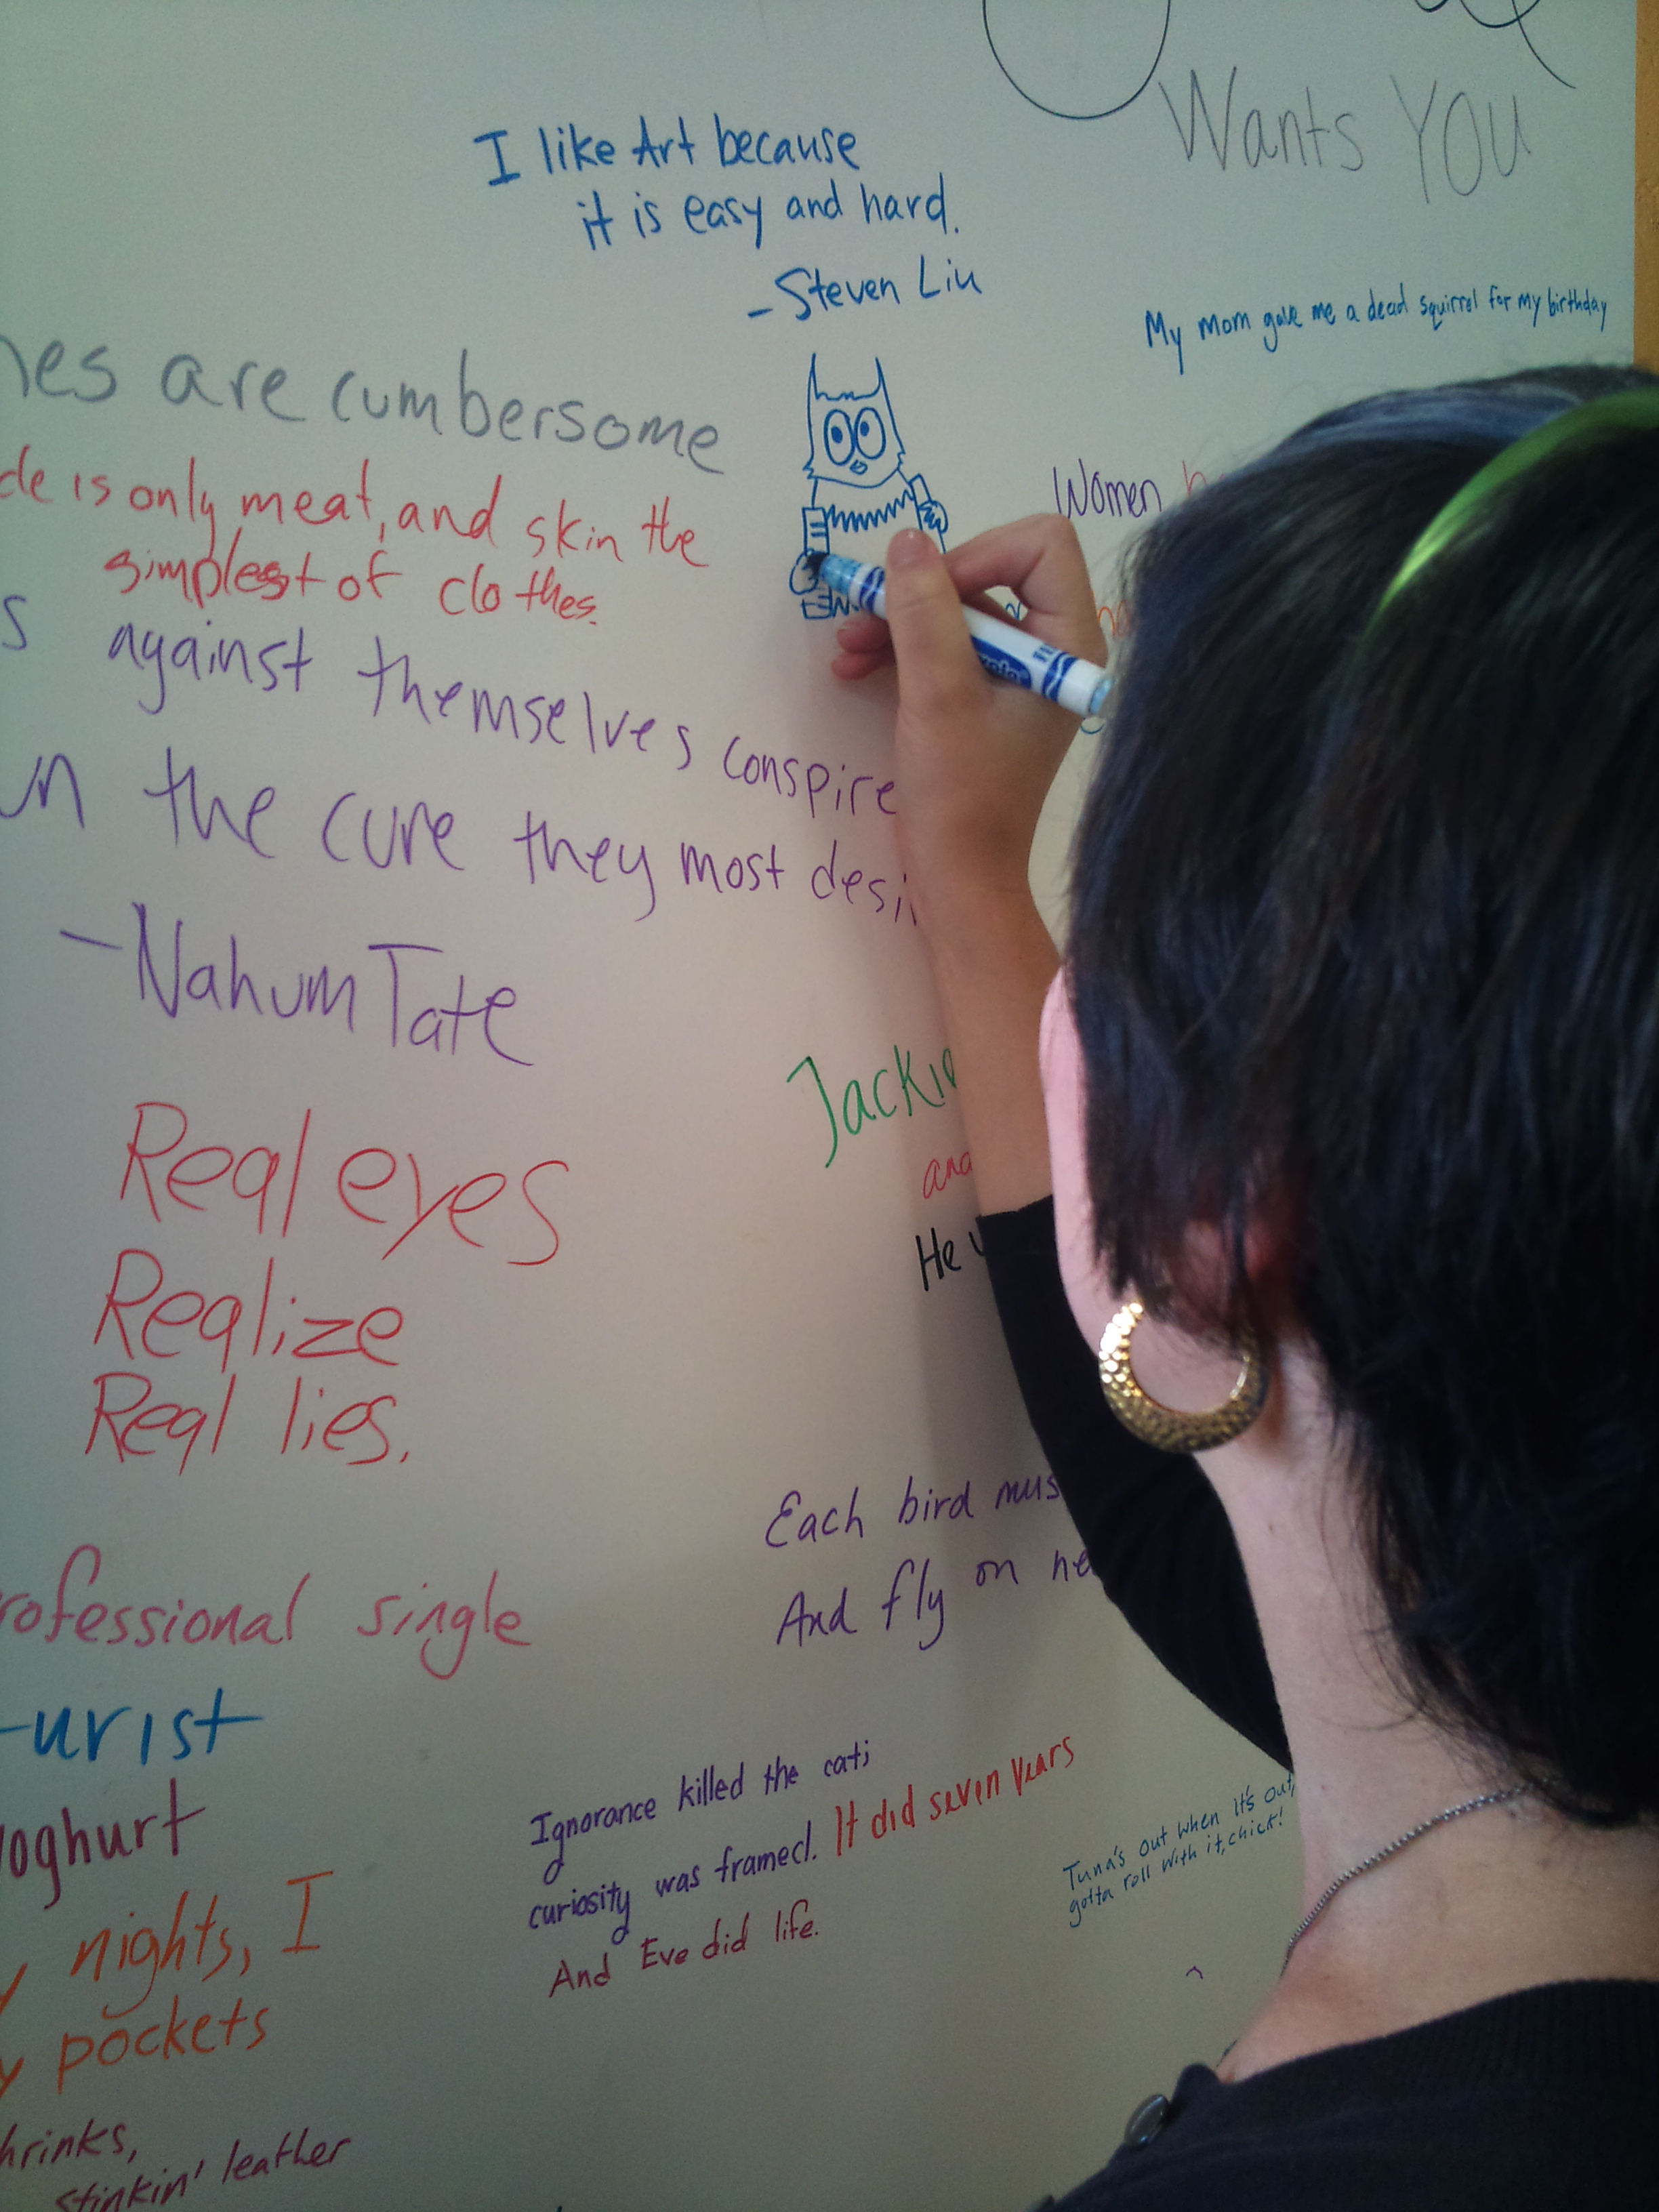 Wants YOU
I like Art because
it is easy and hard.
- Steven Liu
My mom gave me a dead squirrel for my birthday
are cumbersome
is only meat, and skin the
simplest of clothes.
Women
against themselves conspire
the cure they most
- Nahum Tate
and
He
Real eyes
Realize
Real lies.
Each bird
And fly on
single
Ignorance killed the cat;
curiosity was framed. It did seven years
And Eve did life.
Tuna's out when it's out,
gotta roll with it, chick!
nights, I
pockets
stinkin' leather